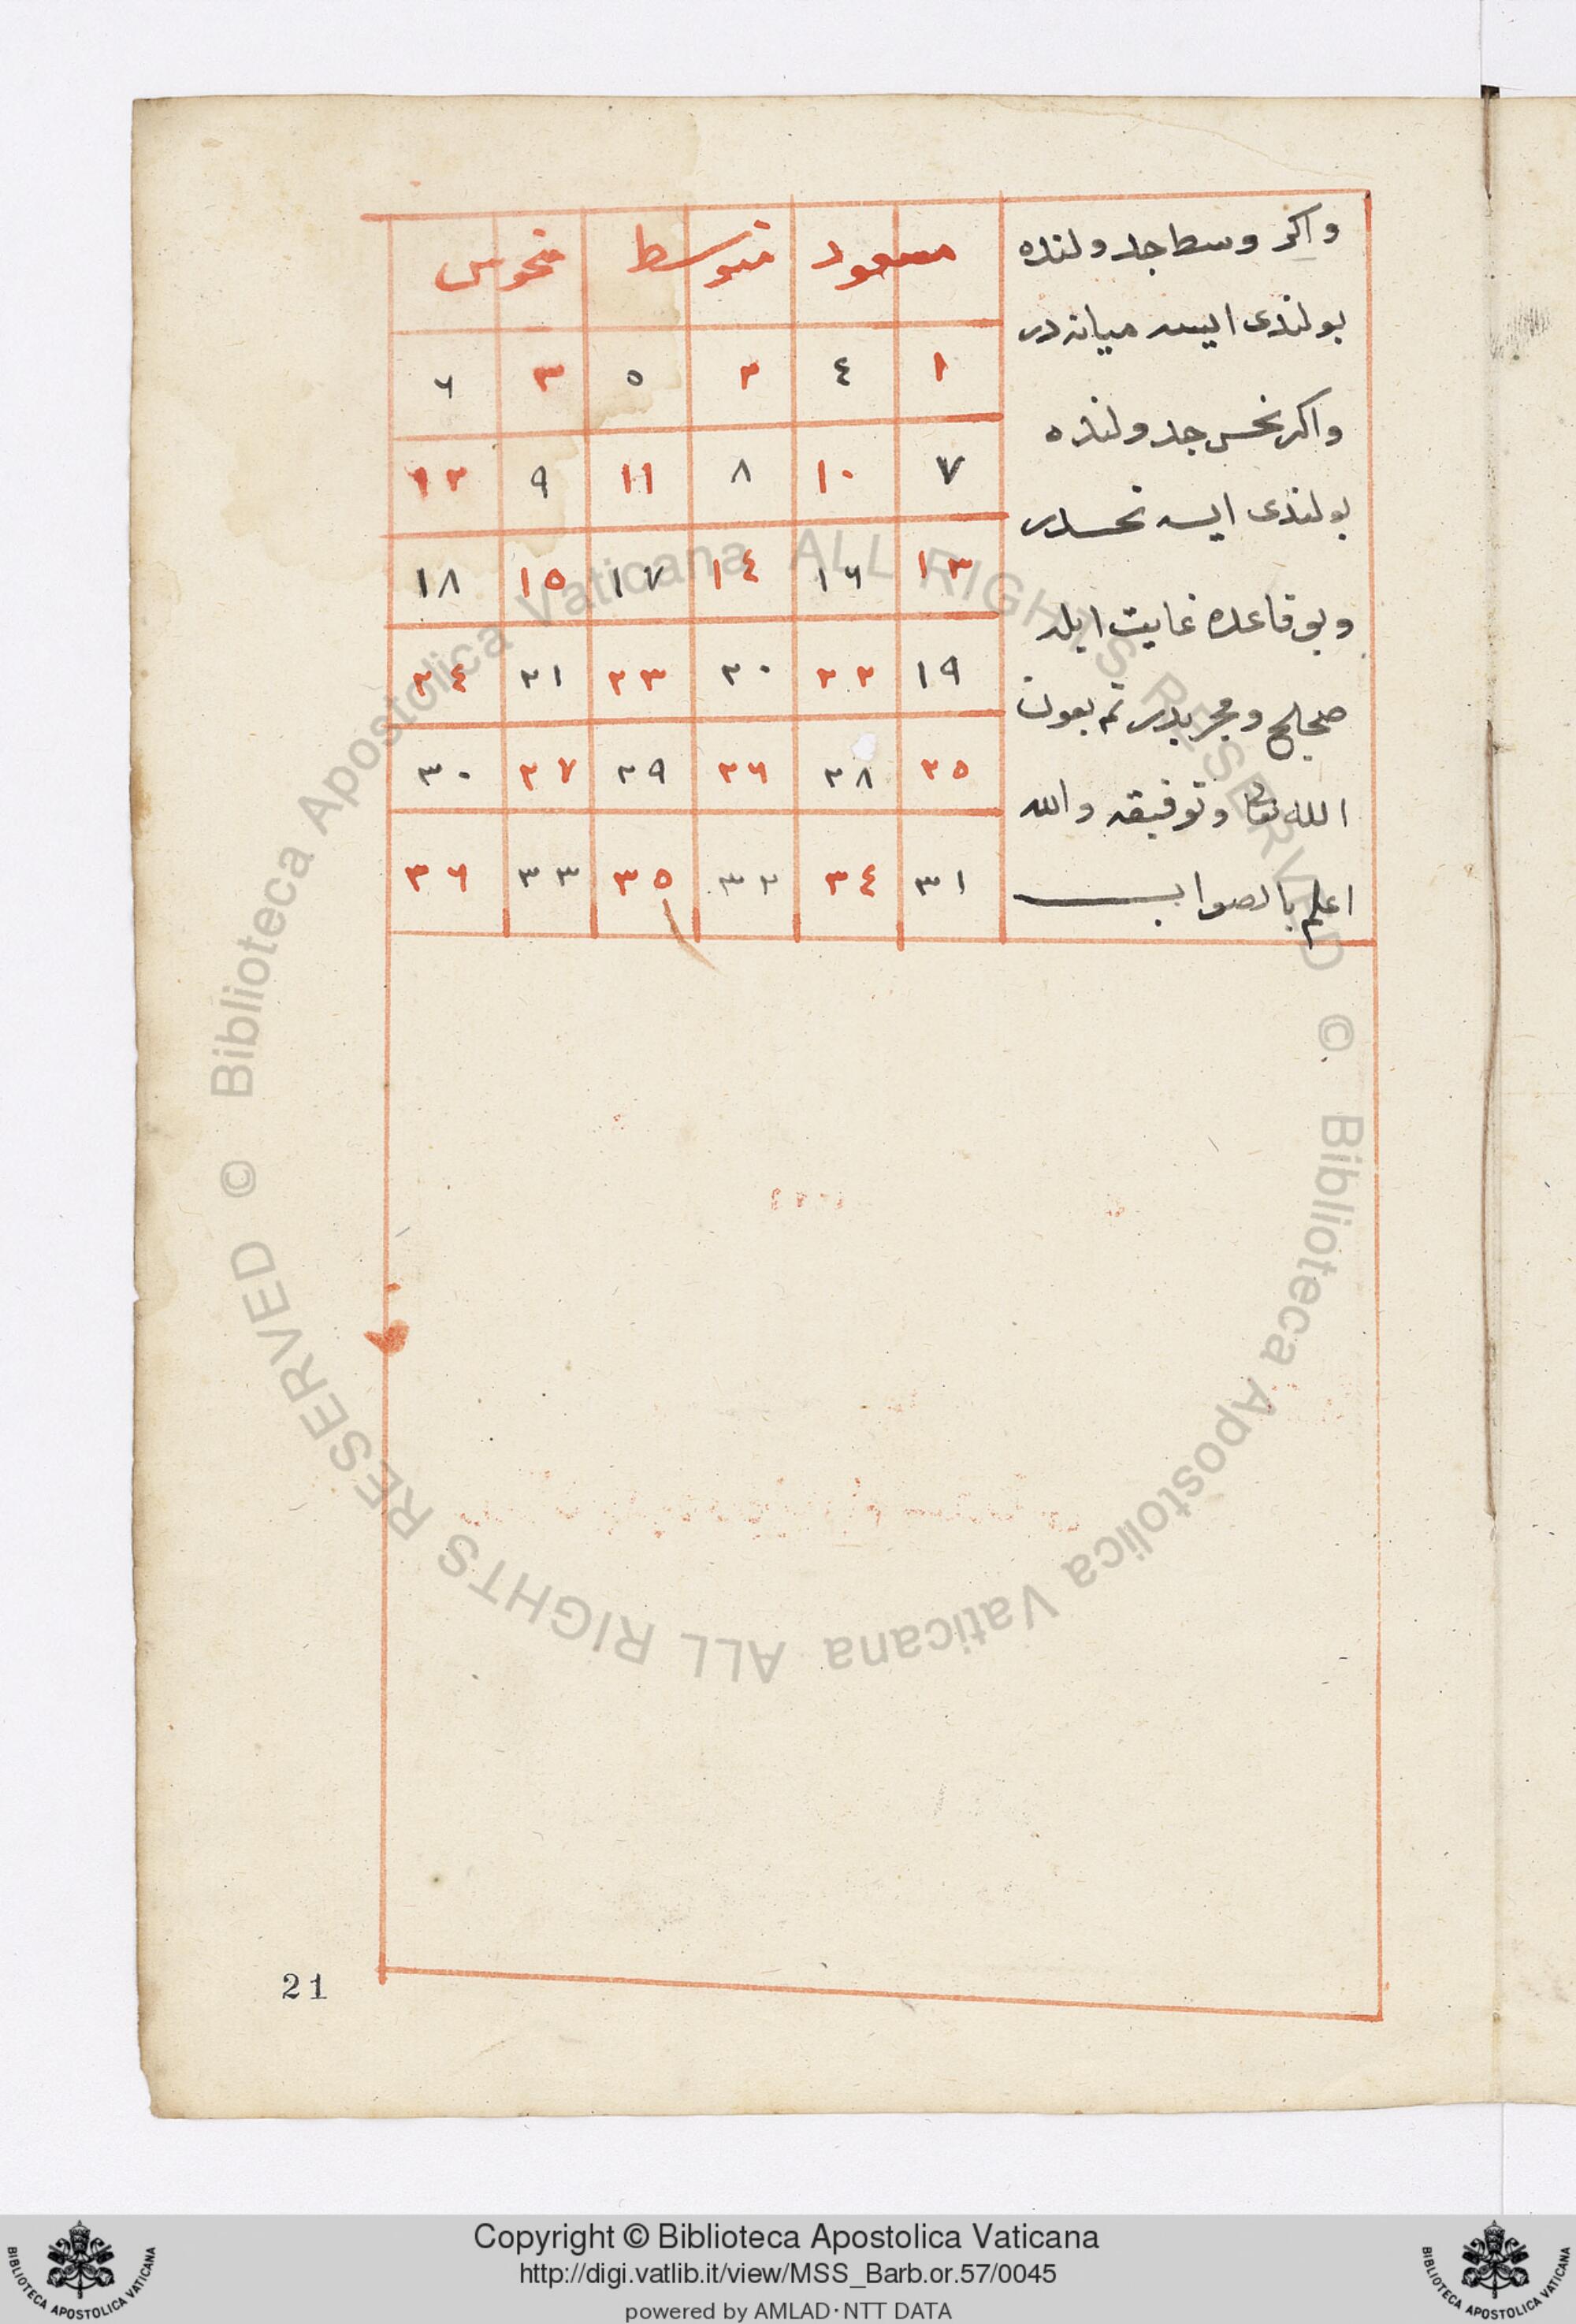 واكر وسط جدولنده
بولندى ايسه ميانه در
واكر نحس جدولنده
بولندى ايسه نحسدر
وبو قاعده غايت ايله
صحيح ومجربدر تم بعون
الله تعا وتوفيقه والله
اعلم بالصواب
مسعود متوسط منحوس
١ ٤ ٢ ٥ ٣ ٦
٧ ١٠ ٨ ١١ ٩ ١٢
١٣ ١٦ ١٤ ١٧ ١٥ ١٨
١٩ ٢٢ ٢٠ ٢٣ ٢١ ٢٤
٢٥ ٢٨ ٢٦ ٢٩ ٢٧ ٣٠
٣١ ٣٤ ٣٢ ٣٥ ٣٣ ٣٦
21
© Biblioteca Apostolica Vaticana ALL RIGHTS RESERVED
© Biblioteca Apostolica Vaticana ALL RIGHTS RESERVED
Copyright © Biblioteca Apostolica Vaticana
http://digi.vatlib.it/view/MSS_Barb.or.57/0045
powered by AMLAD·NTT DATA
BIBLIOTECA APOSTOLICA VATICANA
BIBLIOTECA APOSTOLICA VATICANA